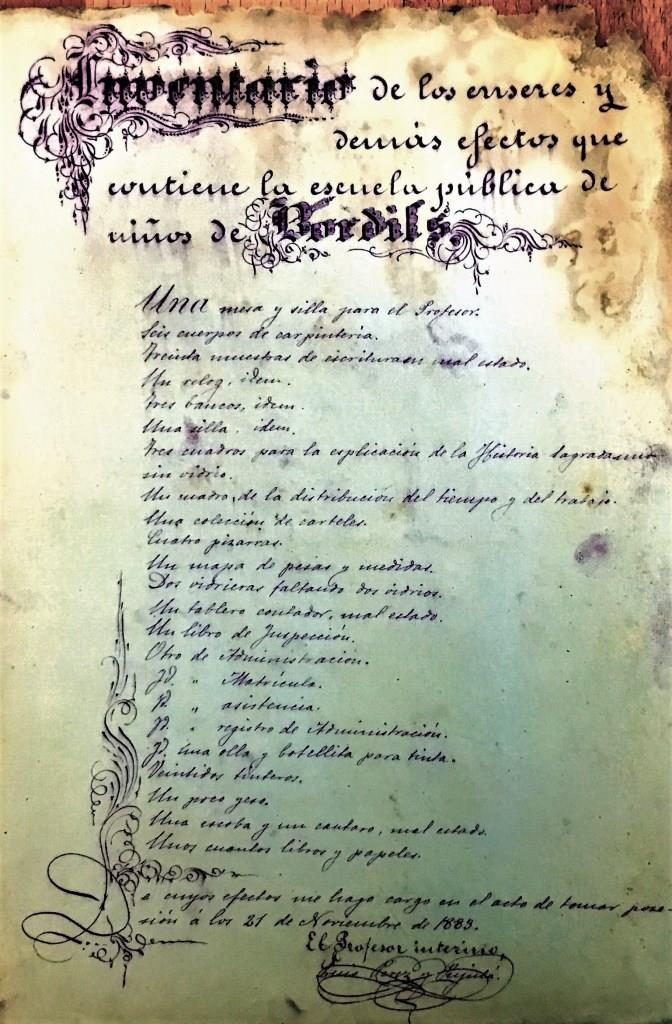 Inventario de los enseres y
demás efectos que
contiene la escuela pública de
niños de Bordils
Una mesa y silla para el Profesor.
Seis cuerpos de carpintería.
Treinta muestras de escritura en mal estado.
Un reloj, idem.
Tres bancos, idem.
Una silla, idem.
Tres cuadros para la esplicación de la Historia Sagrada, uno
sin vidrio.
Un cuadro de la distribución del tiempo y del trabajo.
Una colección de carteles.
Cuatro pizarras.
Un mapa de pesas y medidas.
Dos vidrieras faltando dos vidrios.
Un tablero contador, mal estado.
Un libro de Inspección.
Otro de Administración.
Id. " Matrícula.
Id. " asistencia.
Id. " registro de Administración.
Id. una olla y botellita para tinta.
Veintidos tinteros.
Un poco yeso.
Una escoba y un cantaro, mal estado.
Unos cuantos libros y papeles.
De cuyos efectos me hago cargo en el acto de tomar pose-
sión á los 21 de Noviembre de 1883.
El Profesor interino,
Luis Perez y